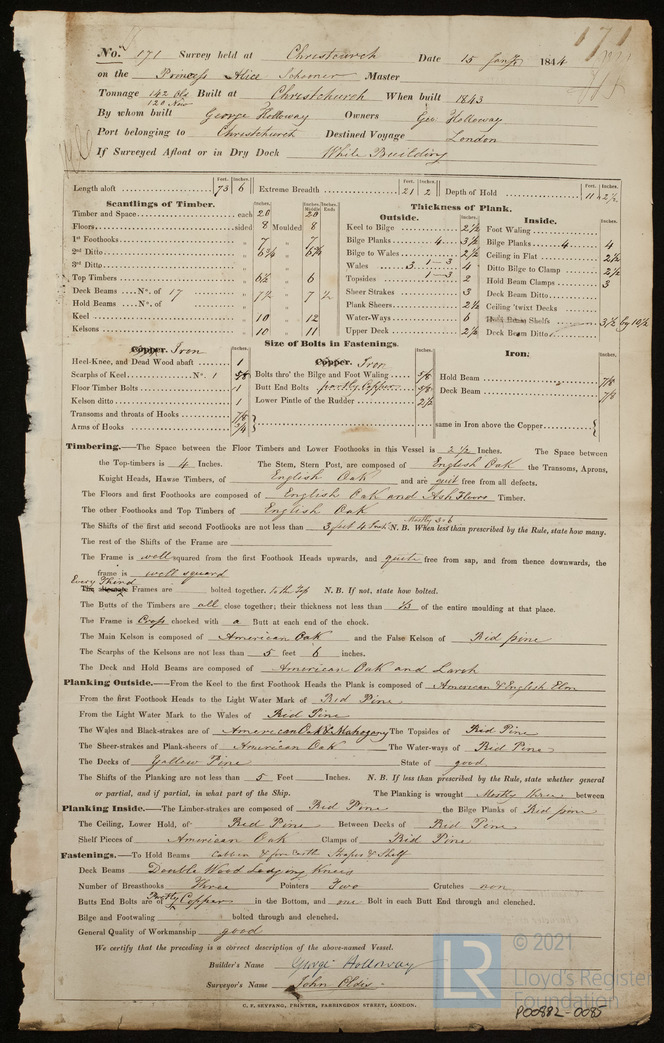 171
No. 171 Survey held at Christchurch Date 15 Jany 1844
on the Princess Alice Schooner Master
Tonnage 142 Old 120 New Built at Christchurch When built 1843
By whom built George Holloway Owners Geo Holloway
Port belonging to Christchurch Destined Voyage London
If Surveyed Afloat or in Dry Dock While Building
Feet. Inches. Feet. Inches. Feet. Inches.
Length aloft 75 6 Extreme Breadth 21 2 Depth of Hold 11 2½
Scantlings of Timber. Inches. Inches. Middle Inches. Ends
Timber and Space each 20 20
Floors sided 8 Moulded 8
1st Foothooks " 7 " 7
2nd Ditto " 6¾ " 6¾
3rd Ditto " "
Top Timbers " 6½ " 6
Deck Beams No. of 17 " 7½ " 7 ½
Hold Beams No. of " "
Keel " 10 " 12
Kelsons " 10 " 11
Thickness of Plank.
Outside. Inches.
Keel to Bilge 2½
Bilge Planks 4 3½
Bilge to Wales 2½
Wales 3 1-3 4
Topsides 1-3 2
Sheer Strakes 3
Plank Sheers 2½
Water-Ways 6
Upper Deck 2½
Inside. Inches.
Foot Waling
Bilge Planks 4 4
Ceiling in Flat 2½
Ditto Bilge to Clamp 2½
Hold Beam Clamps 3
Deck Beam Ditto
Ceiling 'twixt Decks
Hold Beam Shelfs 3½ by 10½
Deck Beam Ditto
Size of Bolts in Fastenings.
Copper. Iron Inches.
Heel-Knee, and Dead Wood abaft 1
Scarphs of Keel No. 1
Floor Timber Bolts 1
Kelson ditto 1
Transoms and throats of Hooks 7/8
Arms of Hooks 3/4
Copper. Iron Inches.
Bolts thro' the Bilge and Foot Waling 5/8
Butt End Bolts partly Copper 5/8
Lower Pintle of the Rudder 2½
Iron. Inches.
Hold Beam 7/8
Deck Beam 7/8
same in Iron above the Copper
Timbering.—The Space between the Floor Timbers and Lower Foothooks in this Vessel is 2½ Inches. The Space between
the Top-timbers is 4 Inches. The Stem, Stern Post, are composed of English Oak the Transoms, Aprons,
Knight Heads, Hawse Timbers, of English Oak and are quit free from all defects.
The Floors and first Foothooks are composed of English Oak and Ash Floors Timber.
The other Foothooks and Top Timbers of English Oak
Mostly 3-6
The Shifts of the first and second Foothooks are not less than 3 feet 4 Inch N. B. When less than prescribed by the Rule, state how many.
The rest of the Shifts of the Frame are
The Frame is well squared from the first Foothook Heads upwards, and quite free from sap, and from thence downwards, the
frame is well squard
Every Third
The alternate Frames are bolted together. to the Top N. B. If not, state how bolted.
The Butts of the Timbers are all close together; their thickness not less than 1/3 of the entire moulding at that place.
The Frame is Cross chocked with a Butt at each end of the chock.
The Main Kelson is composed of American Oak and the False Kelson of Rid pine
The Scarphs of the Kelsons are not less than 5 feet 6 inches.
The Deck and Hold Beams are composed of American Oak and Larch
Planking Outside.—From the Keel to the first Foothook Heads the Plank is composed of American & English Elm
From the first Foothook Heads to the Light Water Mark of Rid Pine
From the Light Water Mark to the Wales of Rid Pine
The Wales and Black-strakes are of American Oak & Mahogony The Topsides of Rid Pine
The Sheer-strakes and Plank-sheers of American Oak The Water-ways of Rid Pine
The Decks of Yallow Pine State of good
The Shifts of the Planking are not less than 5 Feet Inches. N. B. If less than prescribed by the Rule, state whether general
or partial, and if partial, in what part of the Ship. The Planking is wrought Mostly three between
Planking Inside.—The Limber-strakes are composed of Rid Pine the Bilge Planks of Rid pine
The Ceiling, Lower Hold, of Rid Pine Between Decks of Rid Pine
Shelf Pieces of American Oak Clamps of Rid Pine
Fastenings.—To Hold Beams
Deck Beams Double Wood Lodging Knees
Number of Breasthooks Three Pointers Two Crutches non
Butts End Bolts are of Partly Copper in the Bottom, and one Bolt in each Butt End through and clenched.
Bilge and Footwaling bolted through and clenched.
General Quality of Workmanship good
We certify that the preceding is a correct description of the above-named Vessel.
Builder's Name George Holloway
Surveyor's Name John Oldis
C. F. SEYFANG, PRINTER, FARRINGDON STREET, LONDON.
LR
© 2021
Lloyd's Register
Foundation
P00882-0085